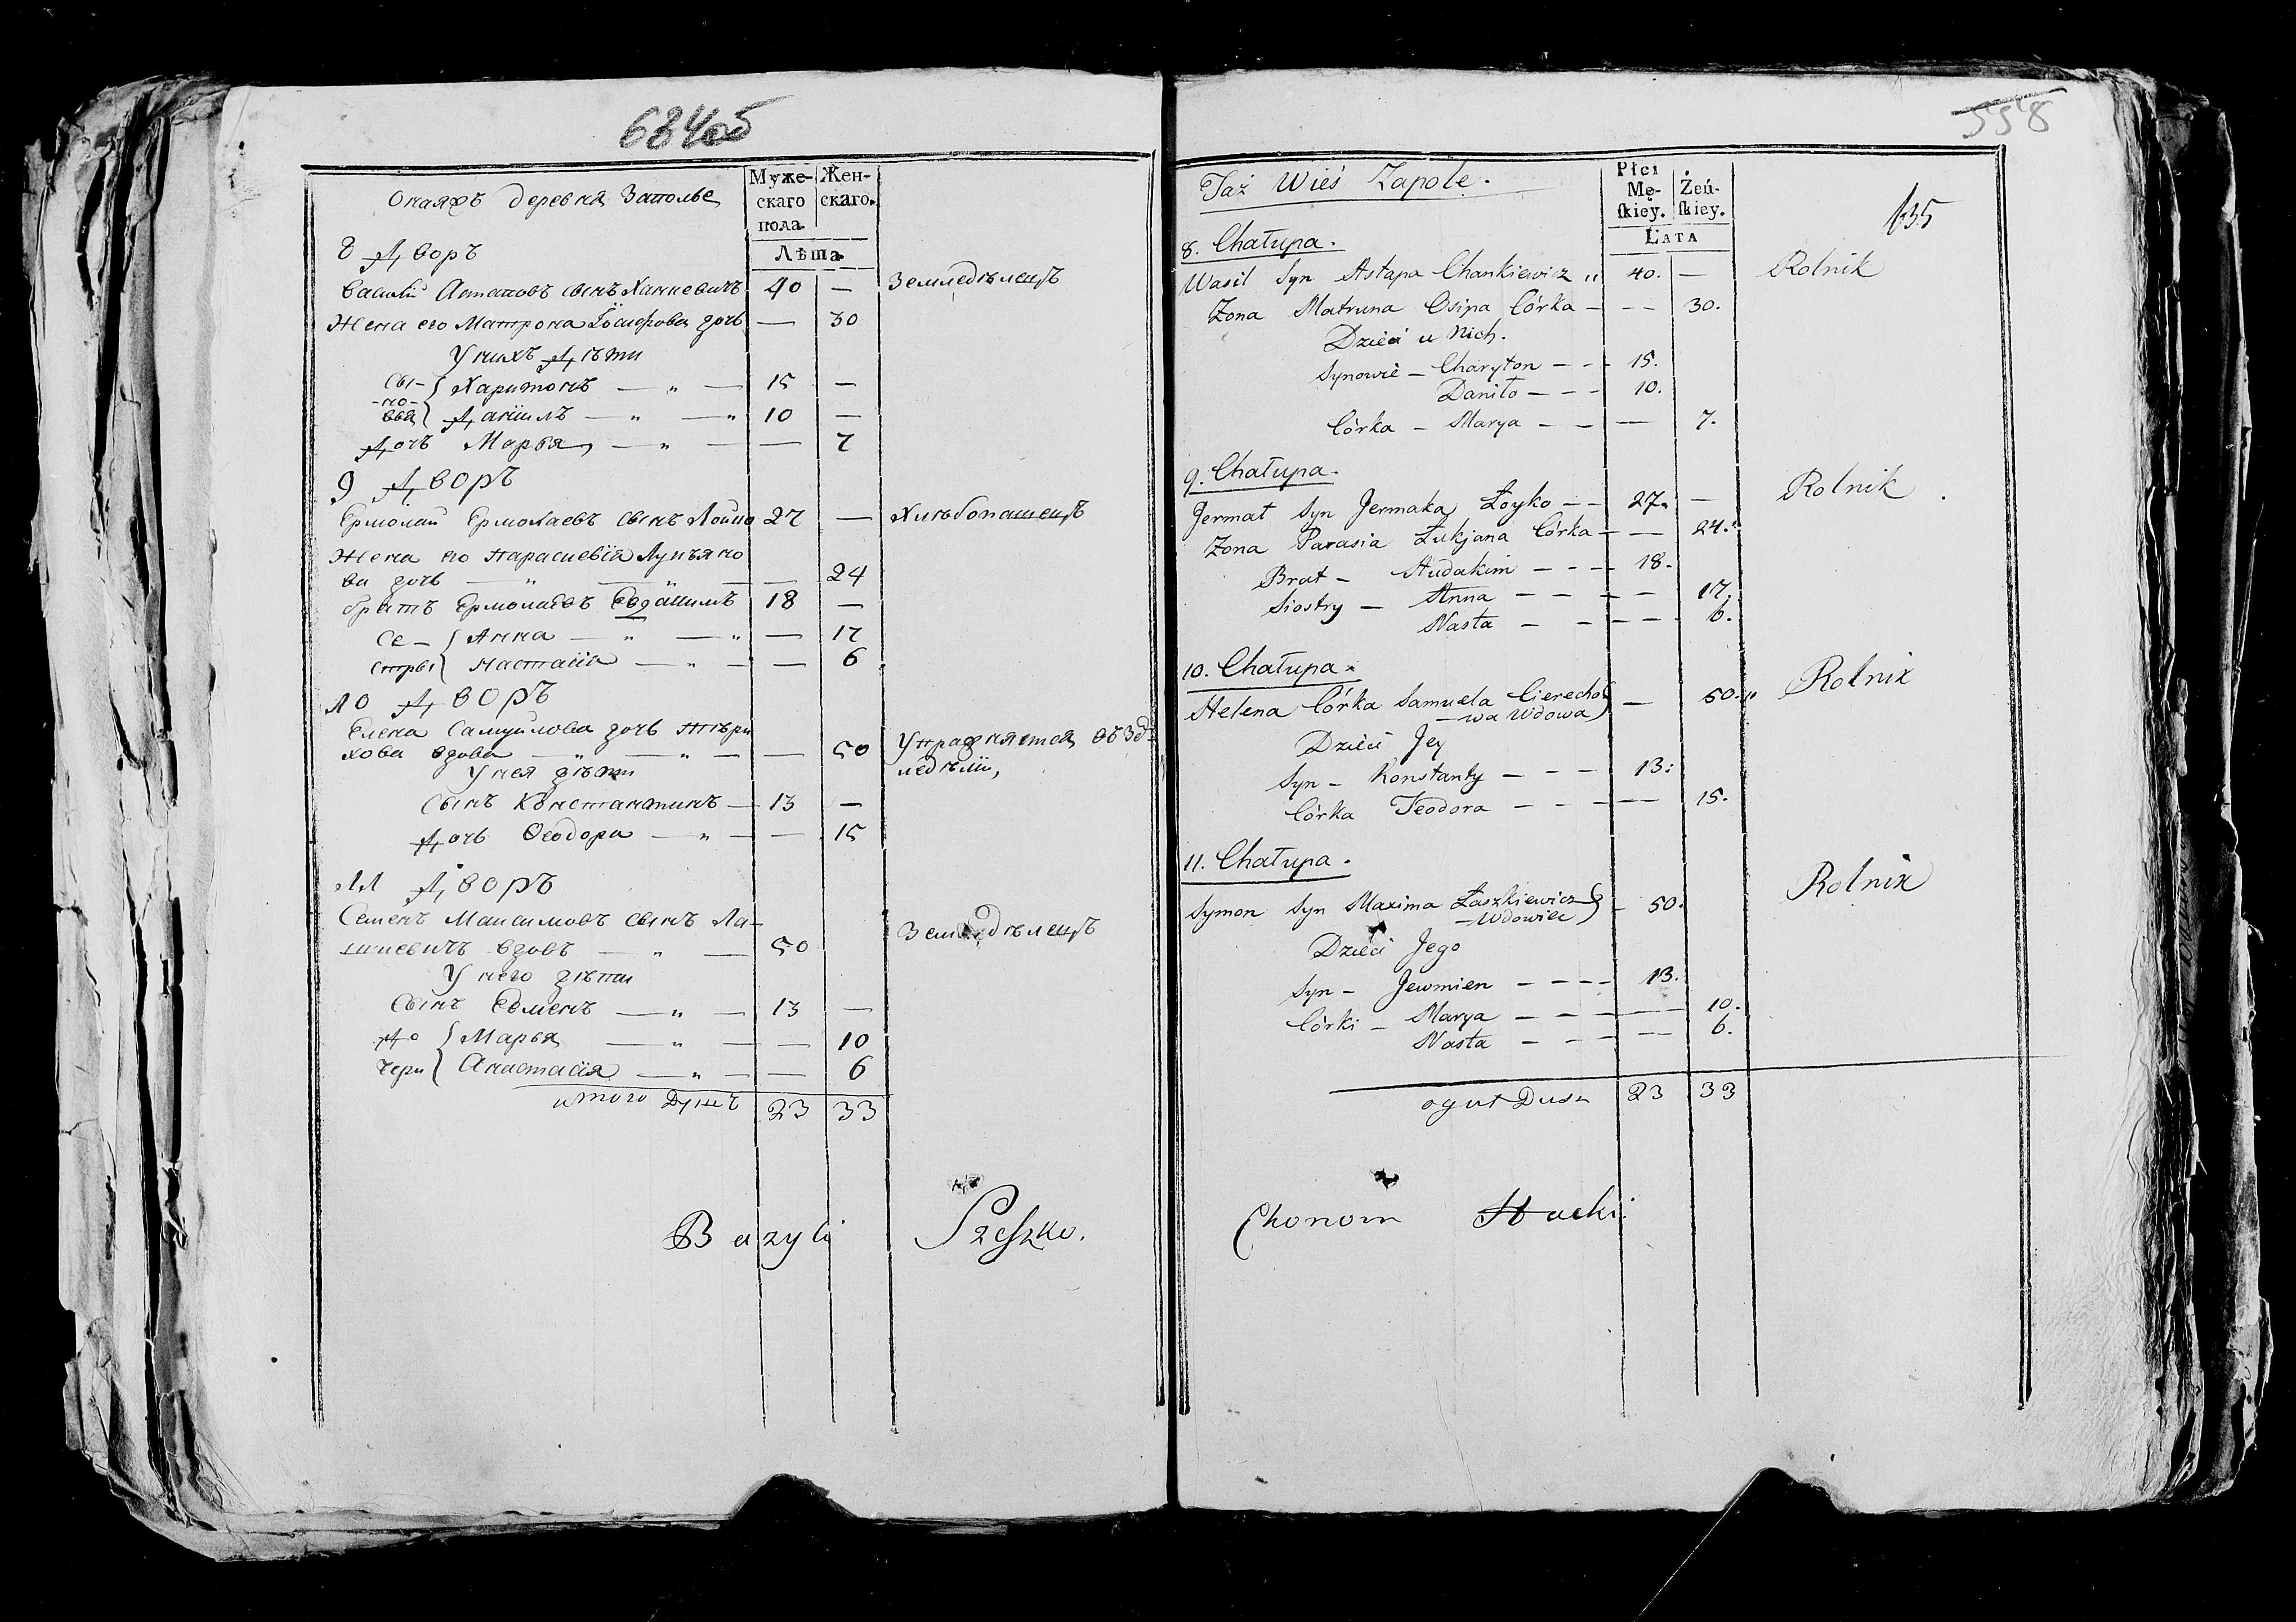 684об
Оная жъ деревня Заполье
Муже-
скаго
пола.
Жен-
скаго.
Лѣта.
8 Дворъ
Василий Астаповъ сынъ Ханкевичъ 40 — Земледѣлецъ
Жена его Матрона Іосифова дочь — 30
У нихъ Дѣти
Сы-
-но-
вья { Харитонъ — „ — 15 —
Даниилъ — „ — „ 10 —
Дочь Марья, — „ — — 7
9 Дворъ
Ермолай Ермолаевъ сынъ Лойко 27 — Хлѣбопашецъ
Жена его Параскевія Лукьяно
ва дочь — „ — „ — — 24
братъ Ермолаевъ Евдакимъ 18 —
Се-
стры { Анна — „ — „ — 17
Настасія — „ — — 6
10 Дворъ
Елена Самуйлова дочь Тѣре
хова вдова — „ — „ — — 50 Упражняется въ Зе
мледѣліи,
У нея дѣти
Сынъ Константинъ — 13 —
Дочь Ѳеодора — „ — — 15
11 Дворъ
Семенъ Максимовъ сынъ Ла-
шкевичъ вдовъ — „ — 50 Земледѣлецъ
У него дѣти
Сынъ Евменъ — „ — 13 —
До
чери { Марья — „ — — 10
Анастасія — „ — — 6
итого Душъ 23 33
Bazyli
558
Taż Wieś Zapole.
Płci
Mę-
ſkiey.
Żeń-
ſkiey.
Lata
635
8. Chałupa.
Wasil Syn Astapa Chankiewicz „ 40. — Rolnik
Zona Matruna Osipa Córka — — — 30.
Dzieci u Nich.
Synowie — Charyton — — 15.
Daniło — — — 10.
Córka — Marya — — — 7.
9. Chałupa.
Jermał Syn Jermaka Łoyko — — 27. — Rolnik
Zona Parasia Łukjana Córka — — 24.
Brat — Audakim — — — 18.
Siostry — Anna — — — — 17.
Nasta — — — — 6.
10. Chałupa.
Helena Córka Samuela Cierecho — 50. Rolnik
-wa Wdowa
Dzieci Jey
Syn — Konstanty — — — 13.
Córka Teodora — — — — 15.
11. Chałupa.
Symon Syn Maxima Łaszkiewicz — 50. Rolnik
-Wdowiec
Dzieci Jego
Syn — Jewmien — — — — 13.
Córki — Marya — — — — 10.
Nasta — — — — 6.
oguł Dusz 23 33
Ekonom